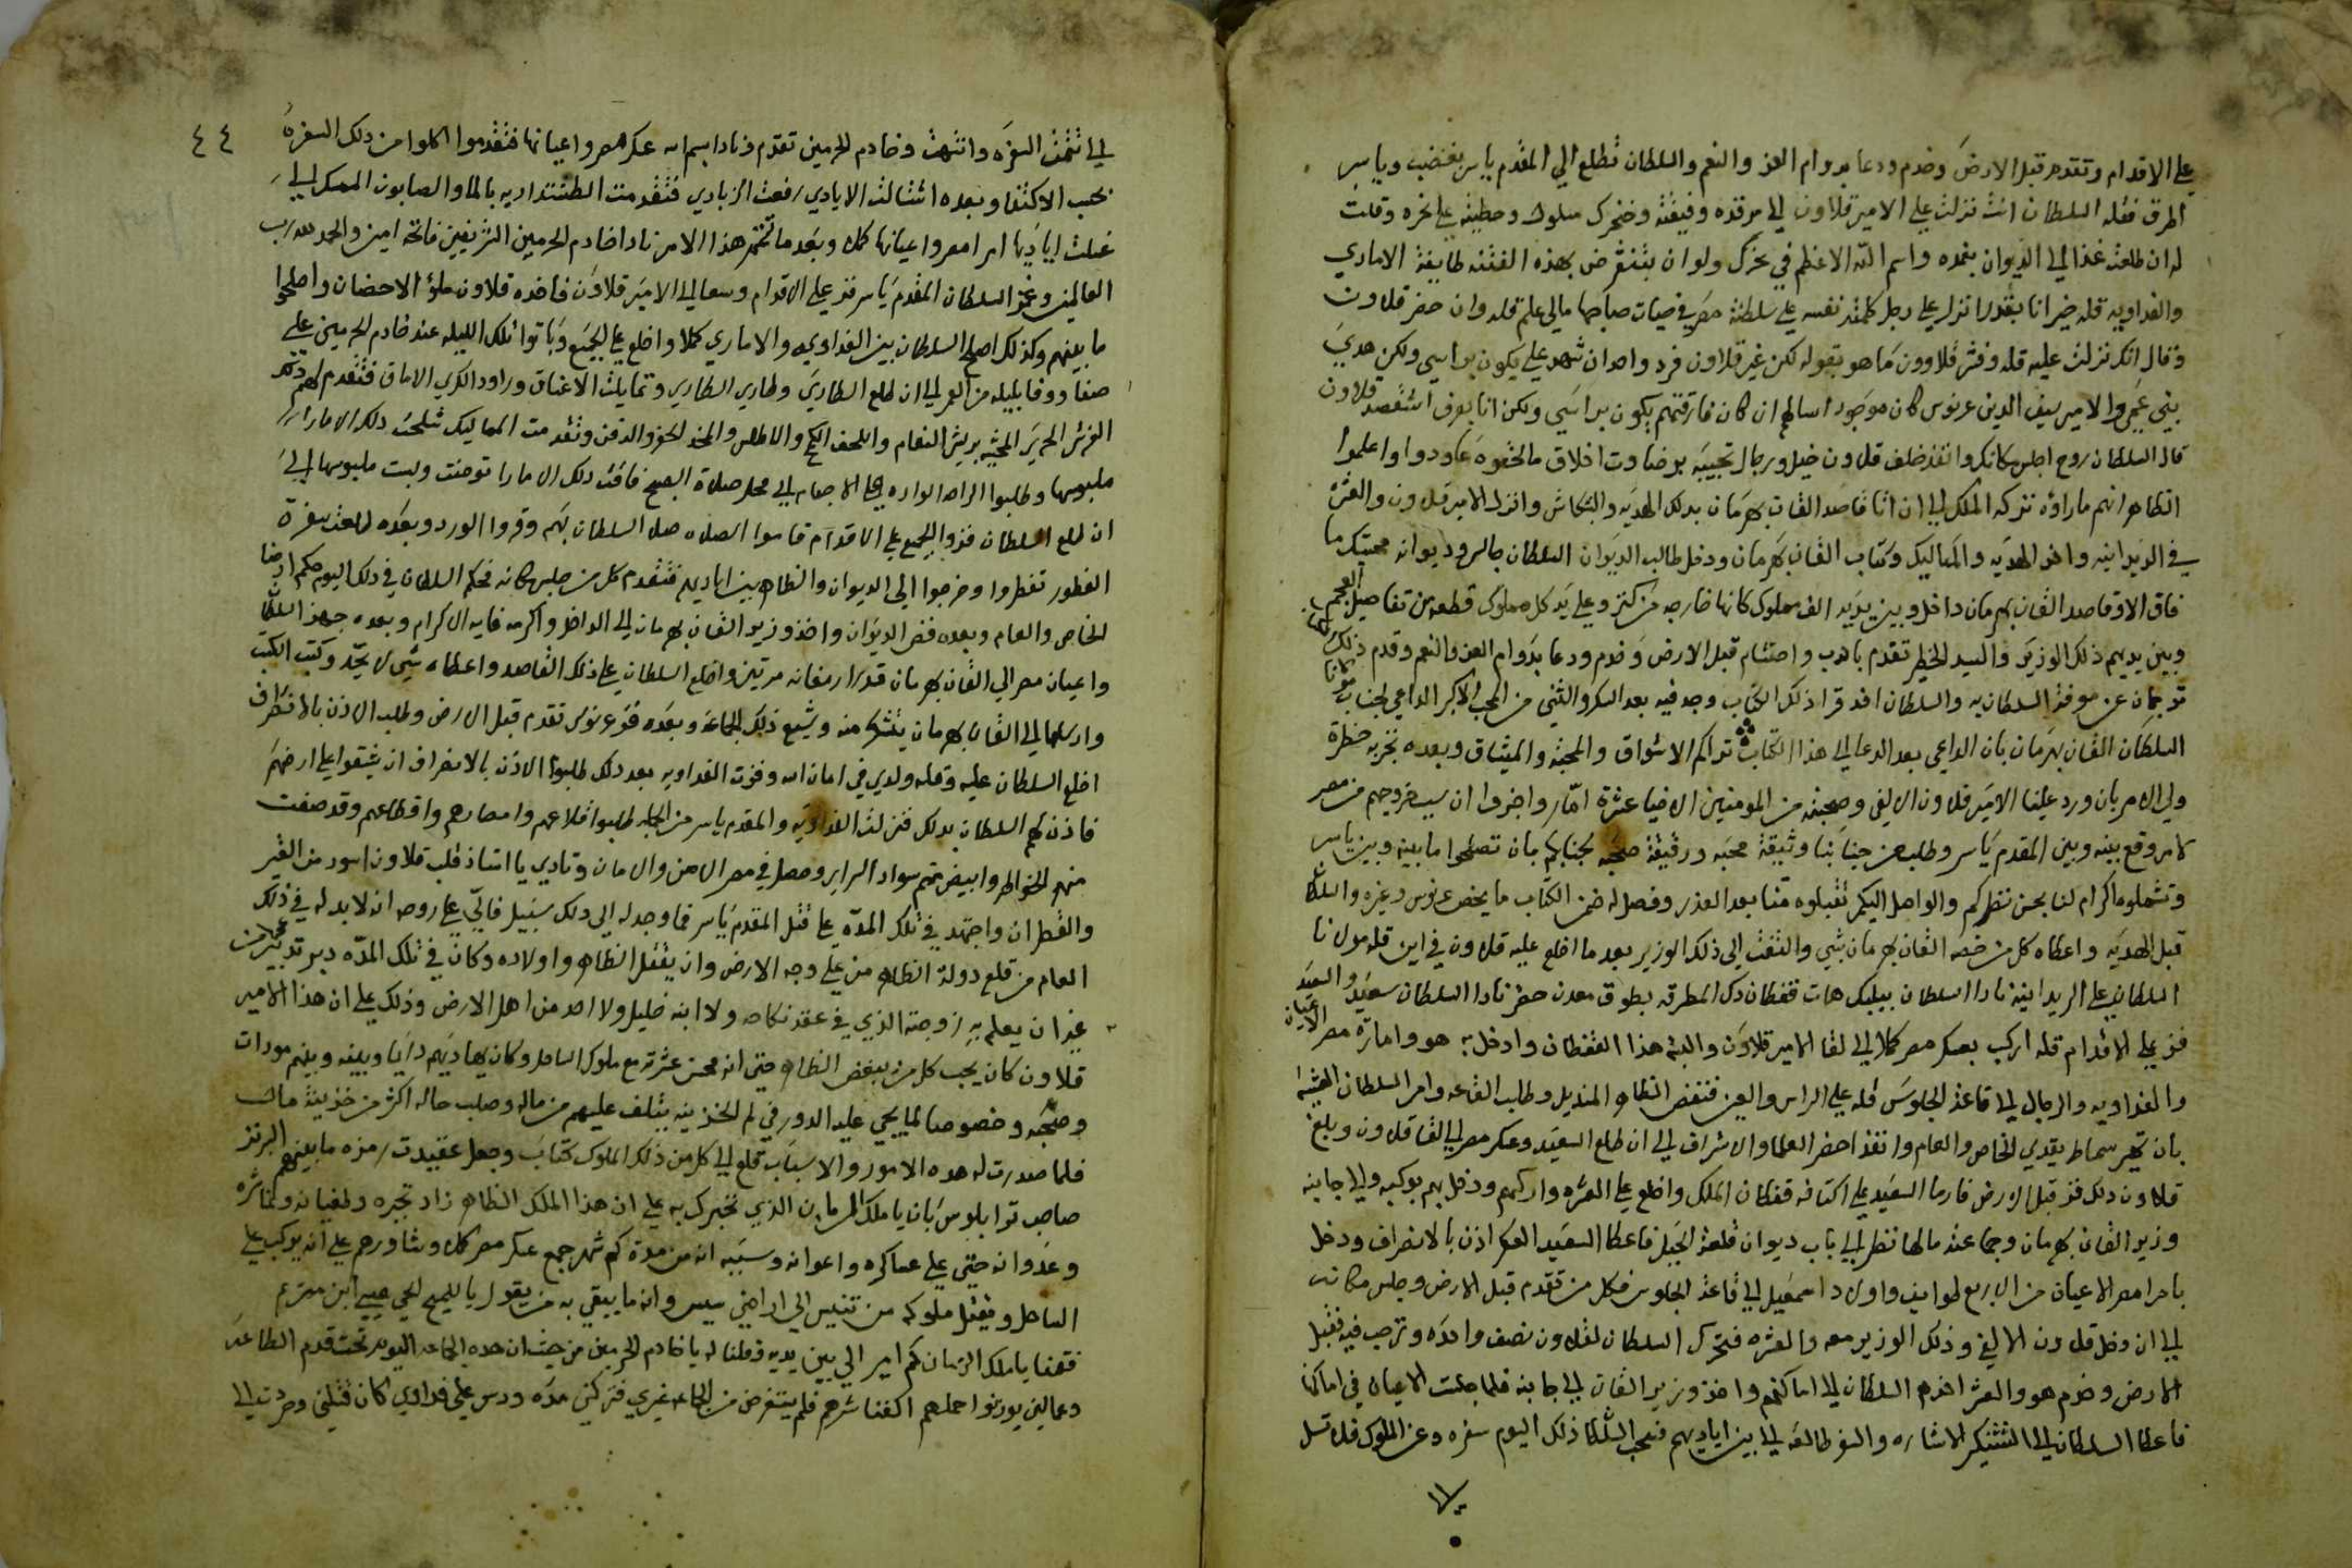 علي الاقدام وتقدم قبل الارض وخدم ودعا بدوام العز والنعم والسلطان تطلع الي المقدم ياسر بغضب وياسر
اطرق فقله السلطان انت نزلت علي الامير قلاون الي مرقده وفيقته وخنجرك مسلول وحطيته علي نحره وقلت
له ان طلعت غدا الي الديوان بغمده واسم الله الاعظم في نحرك ولو ان بتنقرض بهذه الفتنه طايفة الامادي
والفداويه قله خير انا بقدر انزل علي رجل كلمته نفسه علي سلطنة مصر في حيات صاحبها مالي علم قله وان حضر قلاون
وقال انك نزلت عليه قله وقتر قلاوون ما هو بقوله لكن غير قلاون فرد واحد ان شهد علي يكون براسي ولكن هدي
بني عمي والامير سيف الدين عرنوس كان موجود اسالهم ان كان فارقتهم يكون براسي ولكن انا بعرف اشقصد قلاون
قال السلطان روح اجلس مكانك وانفذ خلف قلاون خيل ورجال تجيبه
الظاهر انهم ماراؤه تركه الملك الي ان اتا قاصد القان بهرمان بدلك الهديه والنكاش وانزل الامير قلاون والعشره
في الديوانيه واخد الهديه والمماليك وكتاب القان بهرمان ودخل طالب الديوان السلطان جالس وديوانه محتبك ما
فاق الا وقاصد القان بهرمان داخل وبين يديه الف مملوك كانها خارجه من كنز وعلي يد كل مملوك قطعه من تفاصيل العجم
وبين يديهم ذلك الوزير والسيد الخطير تقدم بادب واحتشام قبل الارض وخدم ودعا بدوام العز والنعم وقدم ذلك
ترجمان عن موقف السلطان به والسلطان اخد قرا ذلك الكتاب وجد فيه بعد الشكر والثني من المحب الاكبر الداعي لجناب مولانا
السلطان القان بهرمان بان الداعي بعد الدعا الي هذا الكتاب تراكم الاشواق والمحبه والميثاق وبعده نخبر به حضرة
ولي الامر بان ورد علينا الامير قلاون الالفي وصحبته من المومنين الاخيا عشرة امار واخبرو ان سبب خروجهم من مصر
كلامر وقع بينه وبين المقدم ياسر وطلب من جنابنا وثيقة محبه ورقيقة صحبه لجنابكم بان تصلحوا ما بينه وبين ياسر
وتشملوه اكرام لنا بحسن نظركم والواصل اليكم تقبلوه منا بعد العذر وفصل له ضمن الكتاب ما يخص عرنوس وغيره والسلطان
قبل الهديه واعطاه كل من خصه القان بهرمان بشي والتفت الي ذلك الوزير بعد ما اخلع عليه قلاون في اين قله مولانا
السلطان علي الريدانيه نادا السلطان بيلبك هات قفطان دك المطرقه بطوق معدن حضر نادا السلطان سعيد والسعيد
فز علي الاقدام قله اركب بعسكر مصر كلا الي لقا الامير قلاون والبسه هذا القفطان وادخل به هو وامارة مصر الاعيان
والفداويه والرجال الي قاعة الجلوس قله علي الراس والعين فنفض الظاهر المنديل وطلب القاعه وامر السلطان
بان تحضر سماط يقدي الخاص والعام وانفذ احضر العلما والاشراف الي ان طلع السعيد وعسكر مصر الي القا قلاون وبلغ
قلاون دلك فز قبل الارض فارما السعيد علي اكتافه قفطان الملك واخلع علي العشره واركبهم ودخل بهم بوكبه والي جابنه
وزير القان بهرمان وجماعته مالها نظر الي باب ديوان قلعة الجبل فاعطا السعيد العسكر اذن بالانصراف ودخل
بامرا مصر الاعيان من الاربع طوايف واولاد اسمعيل الي قاعة الجلوس فكل من تقدم قبل الارض وجلس مكانه
الي ان دخل قلاون الالفي وذلك الوزير معه والعشره فتحرك السلطان لقلاون نصف واحده وترحب فيه فقبل
الارض وخدم هو والعشر اخدهم السلطان الي اماكنهم واخذ وزير القان الي جابنه فلما جلست الاعيان في اماكنها
فاعطا السلطان الي الششنكير الاشاره والسفر طالعه الي بين اياديهم فسحب السلطان ذلك اليوم سفره وعن الملوك فلا تسل
الي
٤٤
الي ان تمت السفره وانتهت وخادم الحرمين تقدم ونادا بسم الله عسكر مصر واعيانها فتقدموا اكلوا من دلك السفرة
بحسب الاكتفا وبعده انشالت الايادي رفعت الزبادي فتقدمت الطشتنداريه بالما والصابون الممسك الي
غسلت اياديها امرا مصر واعيانها كلا وبعد ما تختم هذا الامر نادا خادم الحرمين الشريفين فاتحه امين والحمد لله رب
العالمين وغمز السلطان المقدم ياسر فز علي الاقدام وسعا الي الامير قلاون فاخده قلاون ملؤ الاحضان واصلحوا
ما بينهم وكذلك اصلح السلطان بين الفداويه والاماري كملا واخلع علي الجميع وباتوا تلك الليله عند خادم الحرمين علي
صفا ووفا بليله من العمر الي ان طلع الطاري وطاري الطاري وتمايلت الاعناق وراود الكري الاماق فتقدم لهم ذلك
الفرش الحرير المحشيه بريش النعام واللحف والاطلس والمخد الخز والدقن وتقدمت المماليك شلحت دلك الامارا
ملبوسها وطلبوا الراحه الوارده علي الاجسام الي محل صلاة الصبح فاقت دلك الامارا توضت ولبست ملبوسها الي
ان طلع السلطان فزوا الجميع علي الاقدام قاموا الصلاه صلا السلطان بهم وقروا الورد وبعده طلعت سفرة
الفطور تفطروا وخرجوا الي الديوان والظاهر بين اياديهم فتقدم كل من جلس مكانه فحكم السلطان في دلك اليوم حكم ارضا
الخاص والعام وبعده فض الديوان واخذ وزير القان بهرمان الي الداخل واكرمه غايه الاكرام وبعده جهز السلطان
واعيان مصر الي القان بهرمان قدر ارمغانه مرتين واخلع السلطان علي ذلك القاصد واعطاه شي لا يحد وكتب الكتب
وارسلها الي القان بهرمان يتشكر منه وشيع ذلك الجماعه وبعده فز عرنوس تقدم قبل الارض وطلب الاذن بالانصراف
اخلع السلطان عليه وقله ولدي في امان الله وفزت الفداويه بعد دلك طلبوا الاذن بالانصراف ان يشقوا علي ارضهم
فاذن لهم السلطان بدلك فنزلت الفداويه والمقدم ياسر من الجبله طلبوا قلاعهم وامصارهم واقطاعهم وقد صفت
منهم الخواطر وابيض بتهم سواد البراير وحصل في مصر الامن والامان وتادي يا استاذ قلب قلاون اسود من القير
والقطران واجتهد في تلك المده علي قتل المقدم ياسر فما وجد له الي دلك سبيل فالي علي روحه انه لا بد له في ذلك
العام من قلع دولة الظاهر من علي وجه الارض وان يقتل الظاهر واولاده وكان في تلك المده دبر تدبيرات
غير ان يعلم به زوجته الذي في عقد نكاحه ولا ابنه خليل ولا احد من اهل الارض وذلك علي ان هذا الامير
قلاون كان يحب كل من يبغض الظاهر حتي انه محسن عشرته مع ملوك الساحل وكان يهاديهم دايما وبينه وبينهم مودات
وصحبه وخصوصا لما يجي عليه الدور في لم الخزينه يتلف عليهم من ماله وصلب حاله اكثر من خزينة مال
فلما صدرت له هده الامور والاسباب قلع الي كل من ذلك الملوك كتاب وجعل عقيدت رمزه ما بينهم البرنز
صاحب توابلوس بان يا ملك الزمان الذي نخبرك به علي ان هذا الملك الظاهر زاد تجبره وطغيانه وكثر شره
وعدوانه حتي علي عساكره واعوانه وسببه انه من مدة كم شهر جمع عسكر مصر كلا وشاورهم علي انه يركب علي
الساحل ويقتل ملوكه من تنيس الي اراضي سيس وانه ما يبقي به من يقول يا للمسيح الحي عيسي ابن مريم
فقمنا يا ملك الزمان كم امير الي بين يديه وقلنا له يا خادم الحرمين من حيث ان هده الجماعه اليوم تحت قدم الطاعه
وعمالين يوردوا حملهم اكفنا شرهم فلم يتغرض من الجماعه غيري فتركني مده ودس علي فداوي كان قتلني وصرت الي